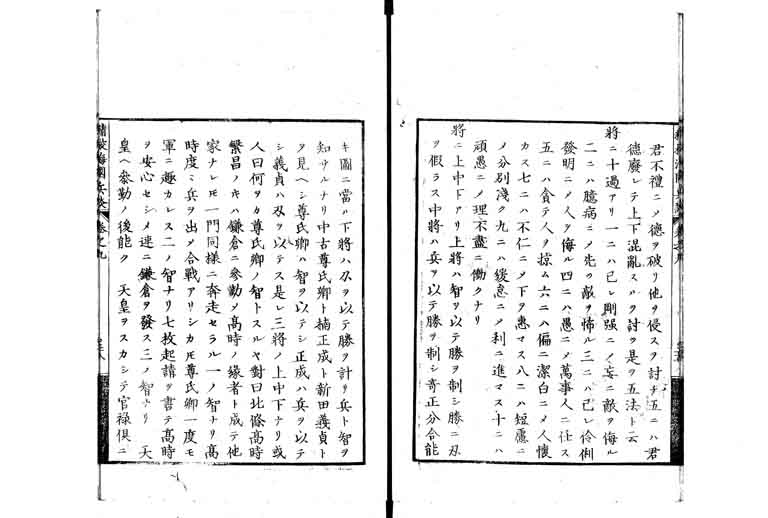 君不禮ニ〆德ヲ破リ他ヲ侵スヲ討チ五ニハ君
德廢レテ上下混亂スルヲ討ヲ是ヲ五法ト云
將ニ十過アリ一ニハ己レ剛强ニ〆妄ニ敵ヲ侮ル
二ニハ臆病ニ〆先ツ敵ヲ怖ル三ニハ己レ伶俐
發明ニ〆人ヲ侮ル四ニハ愚ニ〆萬事人ニ任ス
五ニハ貪テ人ヲ掠ム六ニハ偏ニ潔白ニ〆人懷
カス七ニハ不仁ニ〆下ヲ惠マス八ニハ短慮ニ
〆分別淺ク九ニハ緩怠ニ〆利ニ進マス十ニハ
頑愚ニ〆理不盡ニ働クナリ
將ニ上中下アリ上將ハ智ヲ以テ勝ヲ制シ勝ニ刄
ヲ假ラス中將ハ兵ヲ以テ勝ヲ制シ奇正分合能
キ圖ニ當ル下將ハ刄ヲ以テ勝ヲ計リ兵ト智ヲ
知サルナリ中古尊氏卿ト楠正成ト新田義貞ト
ヲ見ヘシ尊氏卿ハ智ヲ以テシ正成ハ兵ヲ以テ
シ義貞ハ刄ヲ以テス是レ三將ノ上中下ナリ或
人曰何ヲカ尊氏卿ノ智トスルヤ對曰北條高時
繁昌ノ𪜈ハ鎌倉ニ參勤〆高時ノ緣者ト成テ他
家ナレ𪜈一門同樣ニ奔走セラル一ノ智ナリ髙
時度々兵ヲ出〆合戰アリシカ𪜈尊氏卿一度モ
軍ニ趣カレス二ノ智ナリ七枚起請ヲ書テ髙時
ヲ安心セシメ速ニ鎌倉ヲ發ス三ノ智ナリ　天
皇ヘ參勤ノ後能ク　天皇ヲスカシテ官祿倶ニ
精校海國兵談　卷之九